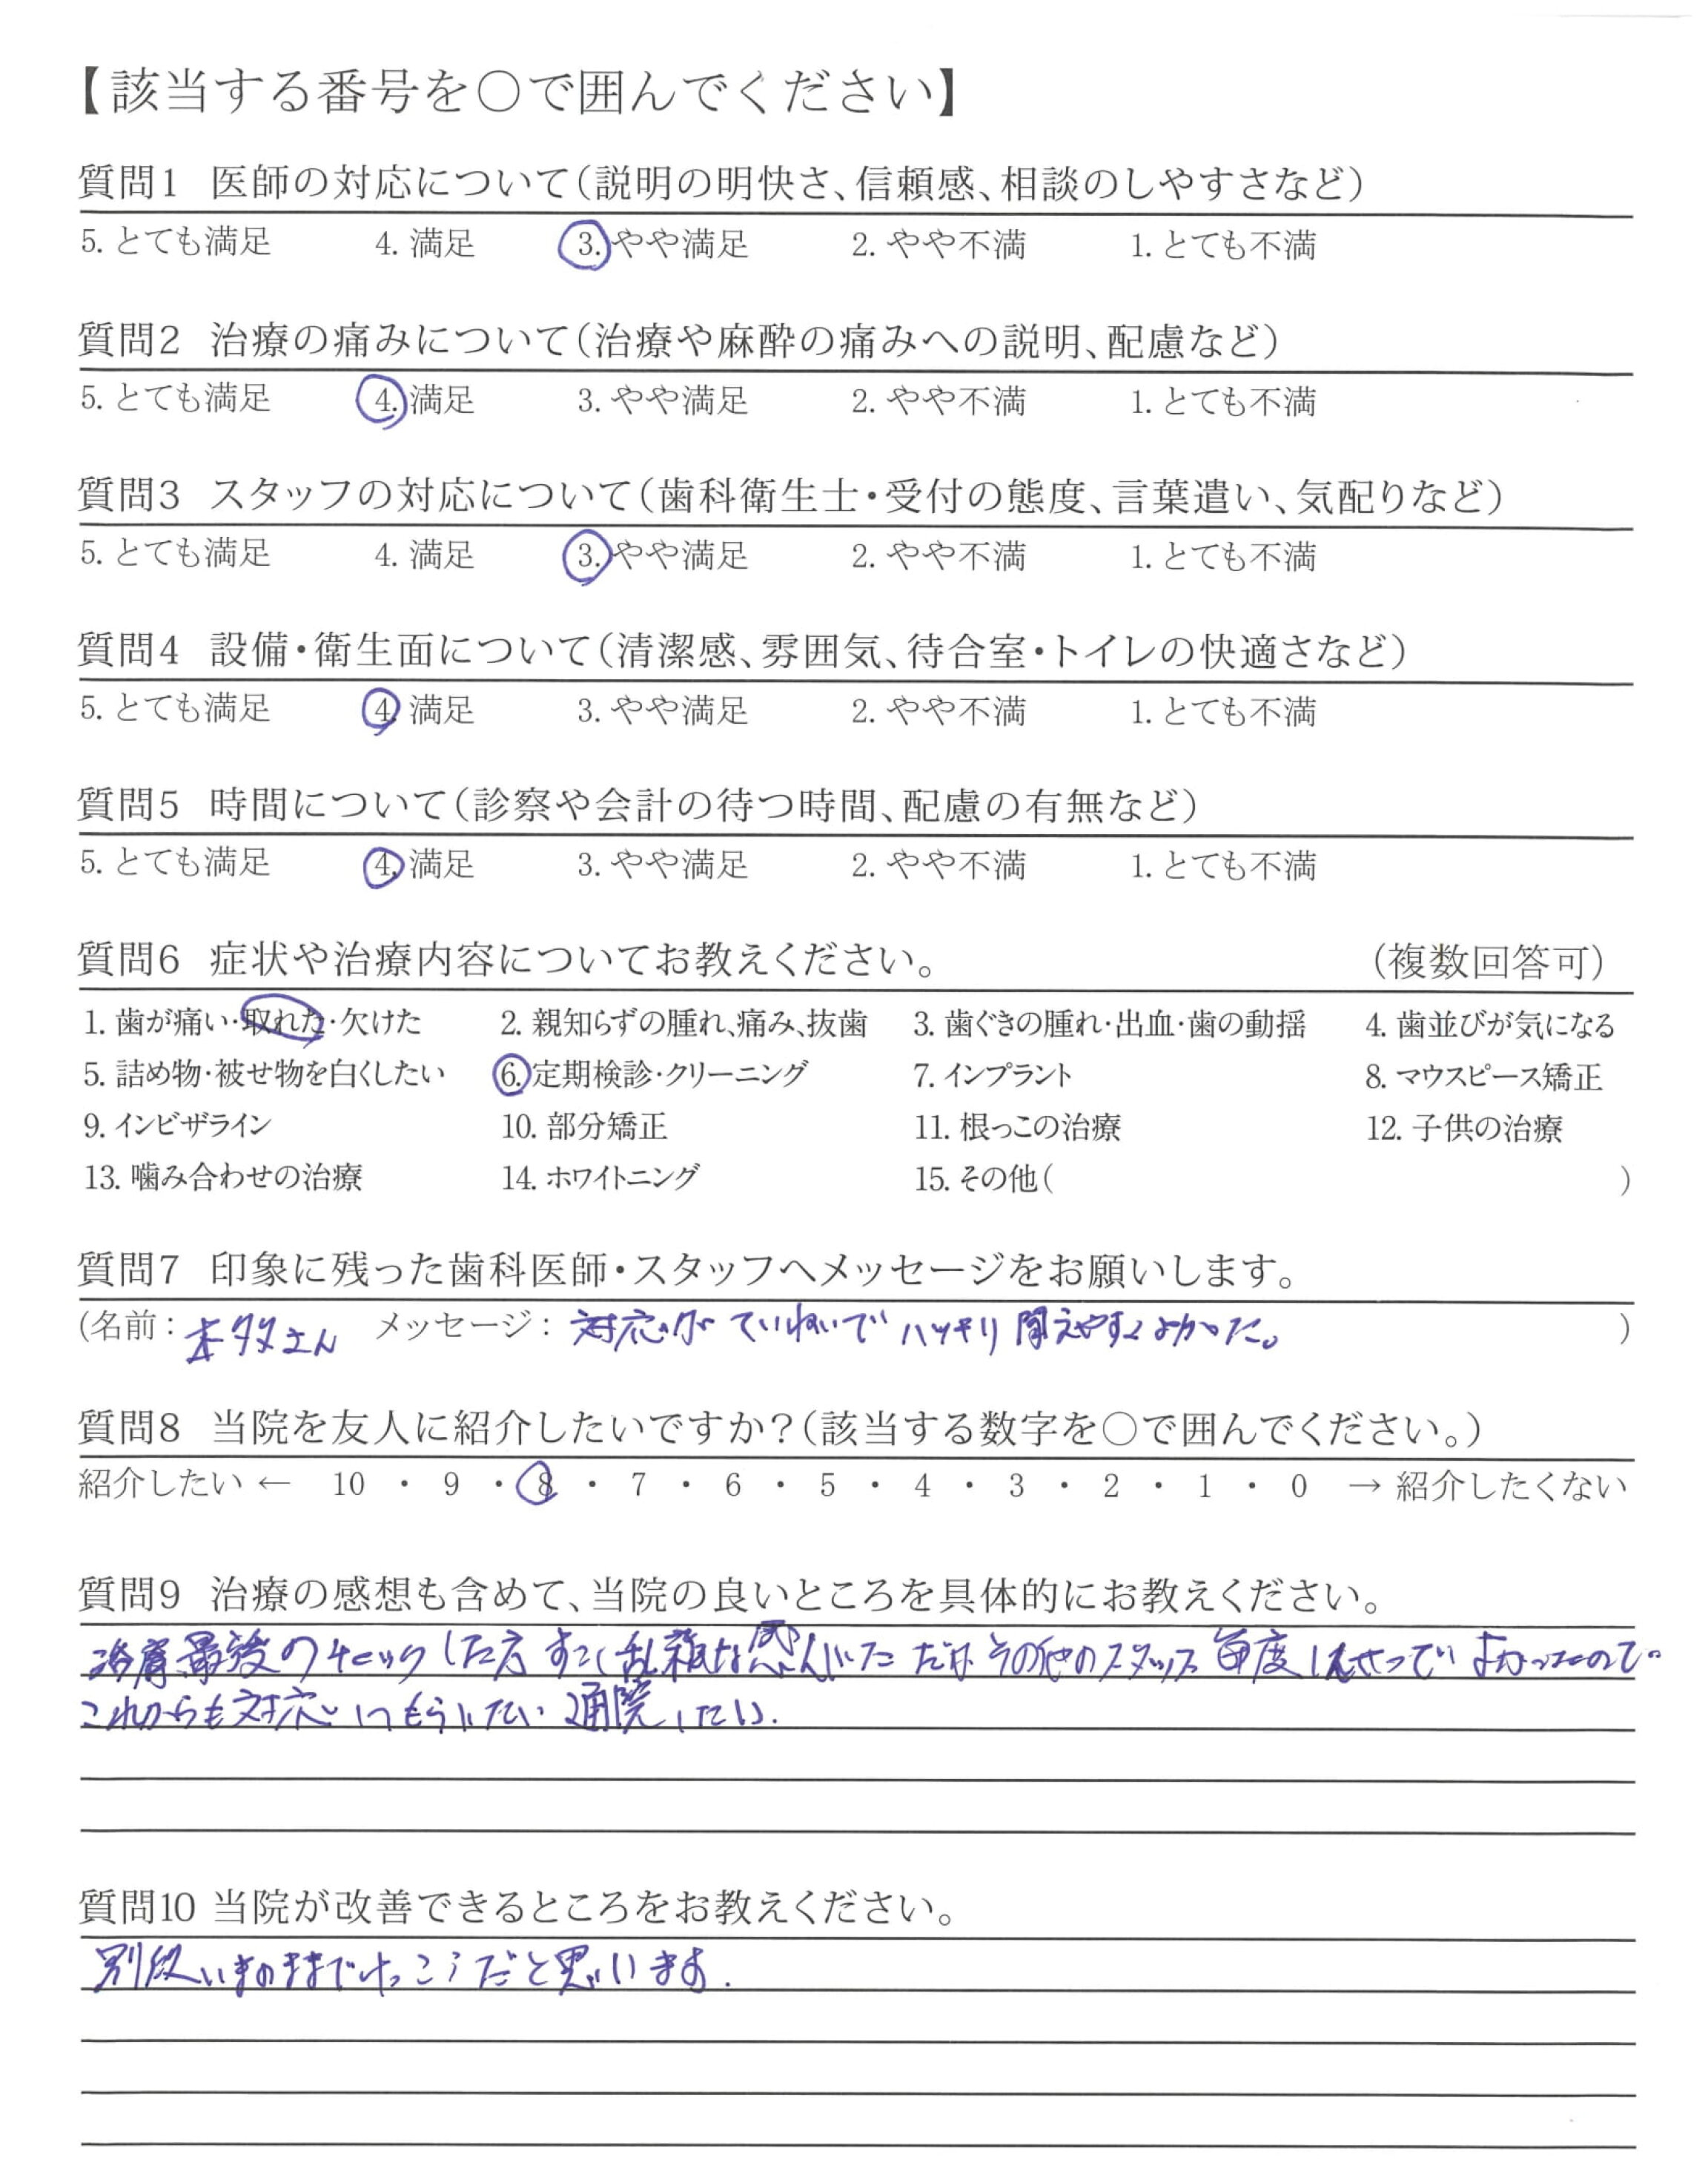 【該当する番号を○で囲んでください】
質問1 医師の対応について(説明の明快さ、信頼感、相談のしやすさなど)
5. とても満足 4. 満足 3. やや満足 2. やや不満 1. とても不満
質問2 治療の痛みについて(治療や麻酔の痛みへの説明、配慮など)
5. とても満足 4. 満足 3. やや満足 2. やや不満 1. とても不満
質問3 スタッフの対応について(歯科衛生士・受付の態度、言葉遣い、気配りなど)
5. とても満足 4. 満足 3. やや満足 2. やや不満 1. とても不満
質問4 設備・衛生面について(清潔感、雰囲気、待合室・トイレの快適さなど)
5. とても満足 4. 満足 3. やや満足 2. やや不満 1. とても不満
質問5 時間について(診察や会計の待つ時間、配慮の有無など)
5. とても満足 4. 満足 3. やや満足 2. やや不満 1. とても不満
質問6 症状や治療内容についてお教えください。 (複数回答可)
1. 歯が痛い・取れた・欠けた 2. 親知らずの腫れ、痛み、抜歯 3. 歯ぐきの腫れ・出血・歯の動揺 4. 歯並びが気になる
5. 詰め物・被せ物を白くしたい 6. 定期検診・クリーニング 7. インプラント 8. マウスピース矯正
9. インビザライン 10. 部分矯正 11. 根っこの治療 12. 子供の治療
13. 噛み合わせの治療 14. ホワイトニング 15. その他( )
質問7 印象に残った歯科医師・スタッフへメッセージをお願いします。
(名前: 本多さん メッセージ: 対応がていねいでハッキリ聞えやすくよかった。 )
質問8 当院を友人に紹介したいですか?(該当する数字を○で囲んでください。)
紹介したい ← 10 ・ 9 ・ 8 ・ 7 ・ 6 ・ 5 ・ 4 ・ 3 ・ 2 ・ 1 ・ 0 → 紹介したくない
質問9 治療の感想も含めて、当院の良いところを具体的にお教えください。
治療最後のチェックした方 すごく乱雑な感じがした だが その他のスタッフ 毎度 よかったので
これからも対応 通院したい.
質問10 当院が改善できるところをお教えください。
別段いまのままでけっこうだと思います.